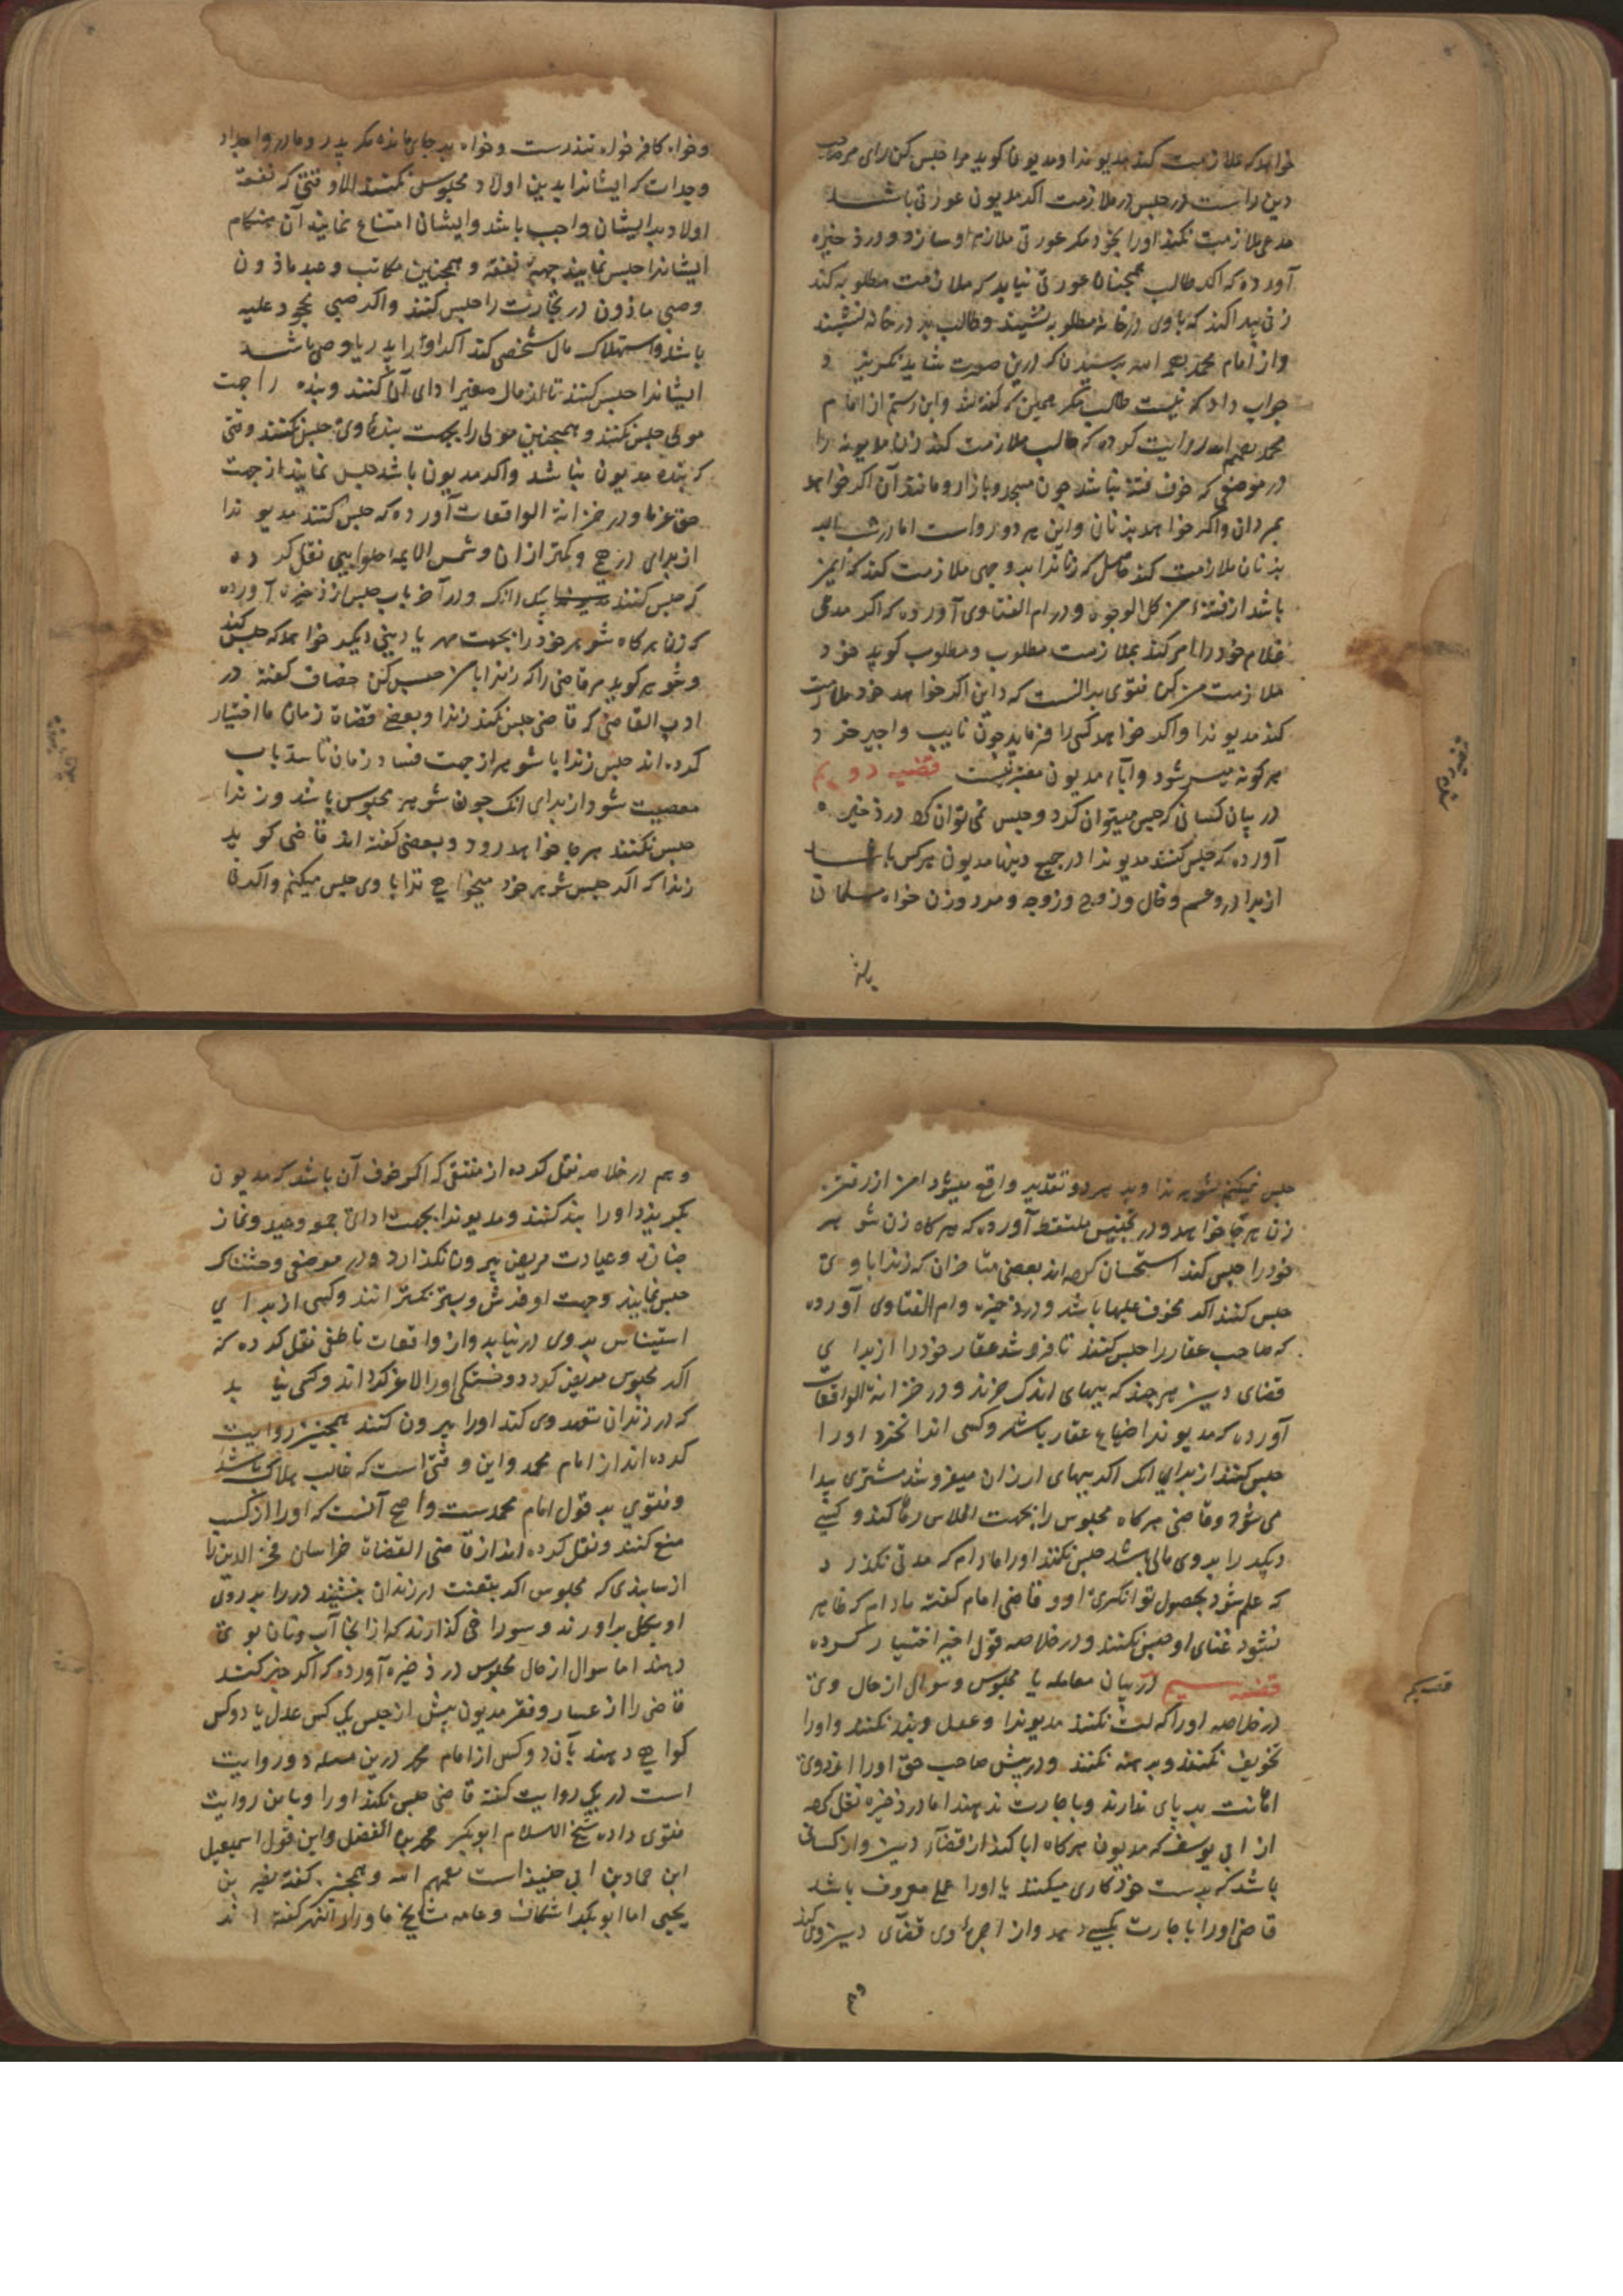 خواهد که ملازمت کند مدیونرا و مدیون کوید مرا حبس کن رای مر صاحب
دین راست در حبس و در ملازمت اکر مدیون عورتی باشد
مدعی ملازمت نکند اورا بخود مکر عورتی ملازم او سازد و در ذخیره
آورده که اکر طالب همچنان عورتی نیابد که ملازمت مطلوبه کند
زنی پیدا کند که با وی در خانه مطلوبه نشیند و طالب بر در خانه نشیند
و از امام محمد رحمه الله پرسیدند که درین صورت شاید بکریزد
جواب داد که نیست طالب مکر همین که کفته شد و ابن رستم از امام
محمد رحمهم الله روایت کرده که طالب ملازمت کند زن مدیونه را
در موضعی که خوف فتنه نباشد چون مسجد و بازار و مانند آن اکر خواهد
بمردان و اکر خواهد بزنان و این هر دو رواست اما در شب باید
بزنان ملازمت کند حاصل که زنانرا بر وجهی ملازمت کند که ایمن
باشد از فتنه من کل الوجوه و در ام الفتاوی آورده که اکر مدعی
غلام خود را امر کند بملازمت مطلوب و مطلوب کوید خود
ملازمت من کن فتوی بر آنست که داین اکر خواهد خود ملازمت
کند مدیونرا و اکر خواهد کسی را فرماید چون نایب و اجیر خود
هر کونه میسر شود و آباء مدیون معتبر نیست قضیه دویم
در بیان کسانی که حبس میتوان کرد و حبس نمی توان کرد در ذخیره
آورده که حبس کنند مدیونرا در جمیع دینها مدیون هر کس باشد
از برادر و عم و خال و زوج و زوجه و مرد و زن خواه مسلمان
وخواه کافر خواه تندرست و خواه بر جای مانده مکر پدر و مادر و اجداد
و جدات که ایشانرا بدین اولاد محبوس نکنند الا وقتی که نفقه
اولاد بر ایشان واجب باشد و ایشان امتناع نمایند آن هنکام
ایشانرا حبس نمایند جهة نفقه و همچنین مکاتب و عبد ماذون
و صبی ماذون در تجارت را حبس کنند و اکر صبی محجور علیه
باشد و استهلاک مال شخصی کند اکر او را پدر یا وصی باشد
ایشانرا حبس کنند تا از مال صغیر ادای آن کنند و بنده را جهت
مولی حبس نکنند و همچنین مولی را بجهت بنده وی حبس نکنند وقتی
که بنده مدیون نباشد و اکر مدیون باشد حبس نمایند از جهت
حق غرما و در خزانة الواقعات آورده که حبس کنند مدیونرا
از برای درهم و کمتر از ان و شمس الایمه حلوایی نقل کرده
که حبس کنند بیک دانک و در آخر باب حبس از ذخیره آورده
که زن هر کاه شوهر خود را بجهت مهر یا دینی دیکر خواهد که حبس کند
و شوهر کوید مر قاضی را که زنرا با من حبس کن خصاف کفته در
ادب القاضی که قاضی حبس نکند زنرا و بعضی قضاة زمان ما اختیار
کرده اند حبس زنرا با شوهر از جهت فساد زمان تا سد باب
معصیت شود از برای انک چون شوهر محبوس باشد و زنرا
حبس نکنند هر جا خواهد رود و بعضی کفته اند قاضی کوید
زنرا که اکر حبس شوهر خود میخواهی ترا با وی حبس میکنم و اکر نی
حبس نمیکنم شوهر ترا و بر هر دو تقدیر واقع میشود امن از رفتن
زن هر جا خواهد و در تجنیس ملتقط آورده که هر کاه زن شوهر
خود را حبس کند استحسان کرده اند بعضی متاخران که زنرا با وی
حبس کنند اکر مخوف علیها باشد و در ذخیره و ام الفتاوی آورده
که صاحب عقار را حبس کنند تا فروشد عقار خود را از برای
قضای دین هر چند که ببهای اندک خرند و در خزانة الواقعات
آورده که مدیونرا ضیاع عقار باشد و کسی انرا نخرد اورا
حبس کنند از برای انک اکر ببهای ارزان میفروشد مشتری پیدا
می شود و قاضی هر کاه محبوس را بجهت افلاس رها کند و کسی
دیکر را بر وی مالی باشد حبس نکنند اورا مادام که مدتی نکذرد
که علم شود بحصول توانکری او و قاضی امام کفته مادام که ظاهر
نشود غنای او حبس نکنند و در خلاصه قول اخیر اختیار کرده
قضیه سیم در بیان معامله با محبوس و سوال از حال وی
در خلاصه آورده که لت نکنند مدیونرا و غل و بند نکنند و اورا
تخویف نکنند و برهنه نکنند و در پیش صاحب حق اورا از روی
اهانت بر پای ندارند و باجارت ندهند اما در ذخیره نقل کرده
از ابی یوسف که مدیون هر کاه ابا کند از قضاء دین و از کسانی
باشد که بدست خود کاری میکنند یا اورا عملی معروف باشد
قاضی اورا باجارت بکسی دهد و از اجرت وی قضای دین وی کند
و هم در خلاصه نقل کرده از منتقی که اکر خوف آن باشد که مدیون
بکریزد اورا بند کنند و مدیونرا بجهت ادای جمعه و عید و نماز
جنازه و عیادت مریض بیرون نکذارد و در موضعی وحشتناک
حبس نمایند و جهت او فرش و بستر نکسترانند و کسی از برای
استیناس بر وی در نیاید و از واقعات ناطفی نقل کرده که
اکر محبوس مریض کردد و خستکی اورا لاغر کرداند و کسی نیابد
که در زندان تعهد وی کند اورا بیرون کنند همچنین روایت
کرده اند از امام محمد و این وقتی است که غالب هلاک باشد
و فتوی بر قول امام محمدست و اصح آنست که اورا از کسب
منع کنند و نقل کرده اند از قاضی القضاة خراسان فخر الدین
که محبوس اکر بتعنت در زندان بنشیند در را بر روی
او بکل براورند و سوراخی کذارند که از انجا آب و نان بوی
دهند اما سوال از حال محبوس در ذخیره آورده که اکر خبر کنند
قاضی را از اعسار و فقر مدیون پیش از حبس یک کس عدل یا دو کس
کواهی دهند بآن دو کس از امام محمد درین مسله دو روایت
است در یک روایت کفته قاضی حبس نکند اورا و باین روایت
فتوی داده شیخ الاسلام ابو بکر محمد بن الفضل و این قول اسمعیل
ابن حماد بن ابی حنیفه است رحمهم الله و همچنین کفته نصیر بن
یحیی اما ابو بکر اسکاف و عامه مشایخ ماوراء النهر کفته اند